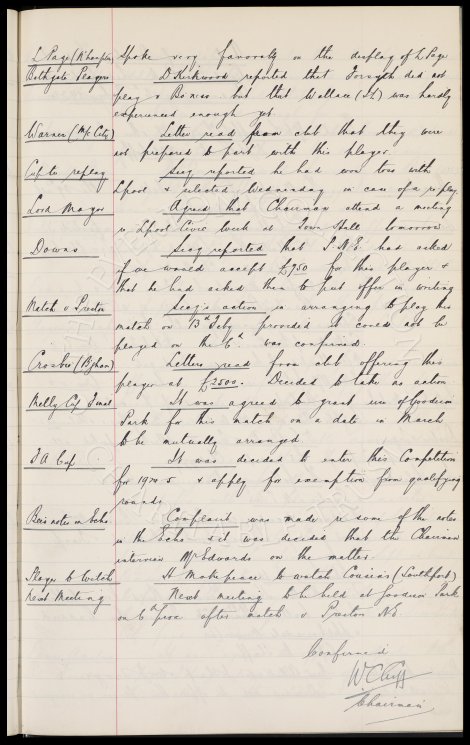 L Page (N'hampton) Spoke very favorably on the display of L Page
Bothgate Players D Kirkwood reported that Forsyth did not
play v Bo'ness but that Wallace (I.L) was hardly
experienced enough yet
Warner (M/c City) Letter read from club that they were
not prepared to part with this player.
Cup tie replay Secy reported he had won toss with
L'pool & selected Wednesday in case of a replay
Lord Mayor Agreed that Chairman attend a meeting
re L'pool Civic Week at Town Hall tomorrow
Downs Secy reported that P.N.E. had asked
if we would accept £750 for this player &
that he had asked them to put offer in writing
Match v Preston Secy's action in arranging to play this
match on 13th Feby provided it could not be
played on the 6th was confirmed.
Crosbie (B'ham) Letter read from club offering this
player at £2500. Decided to take no action
Melly Cup Final It was agreed to grant use of Goodison
Park for this match on a date in March
to be mutually arranged
F A Cup It was decided to enter this Competition
for 1924 5 & apply for exemption from qualifying
rounds
Bee's notes in Echo Complaint was made re some of the notes
in the Echo & it was decided that the Chairman
interview Mr Edwards on the matter.
Player to Watch H Makepeace to watch Cousins (Southport)
Next Meeting Next meeting to be held at Goodison Park
on 6th prox after match v Preston N.E.
Confirmed
W C Cuff
Chairman